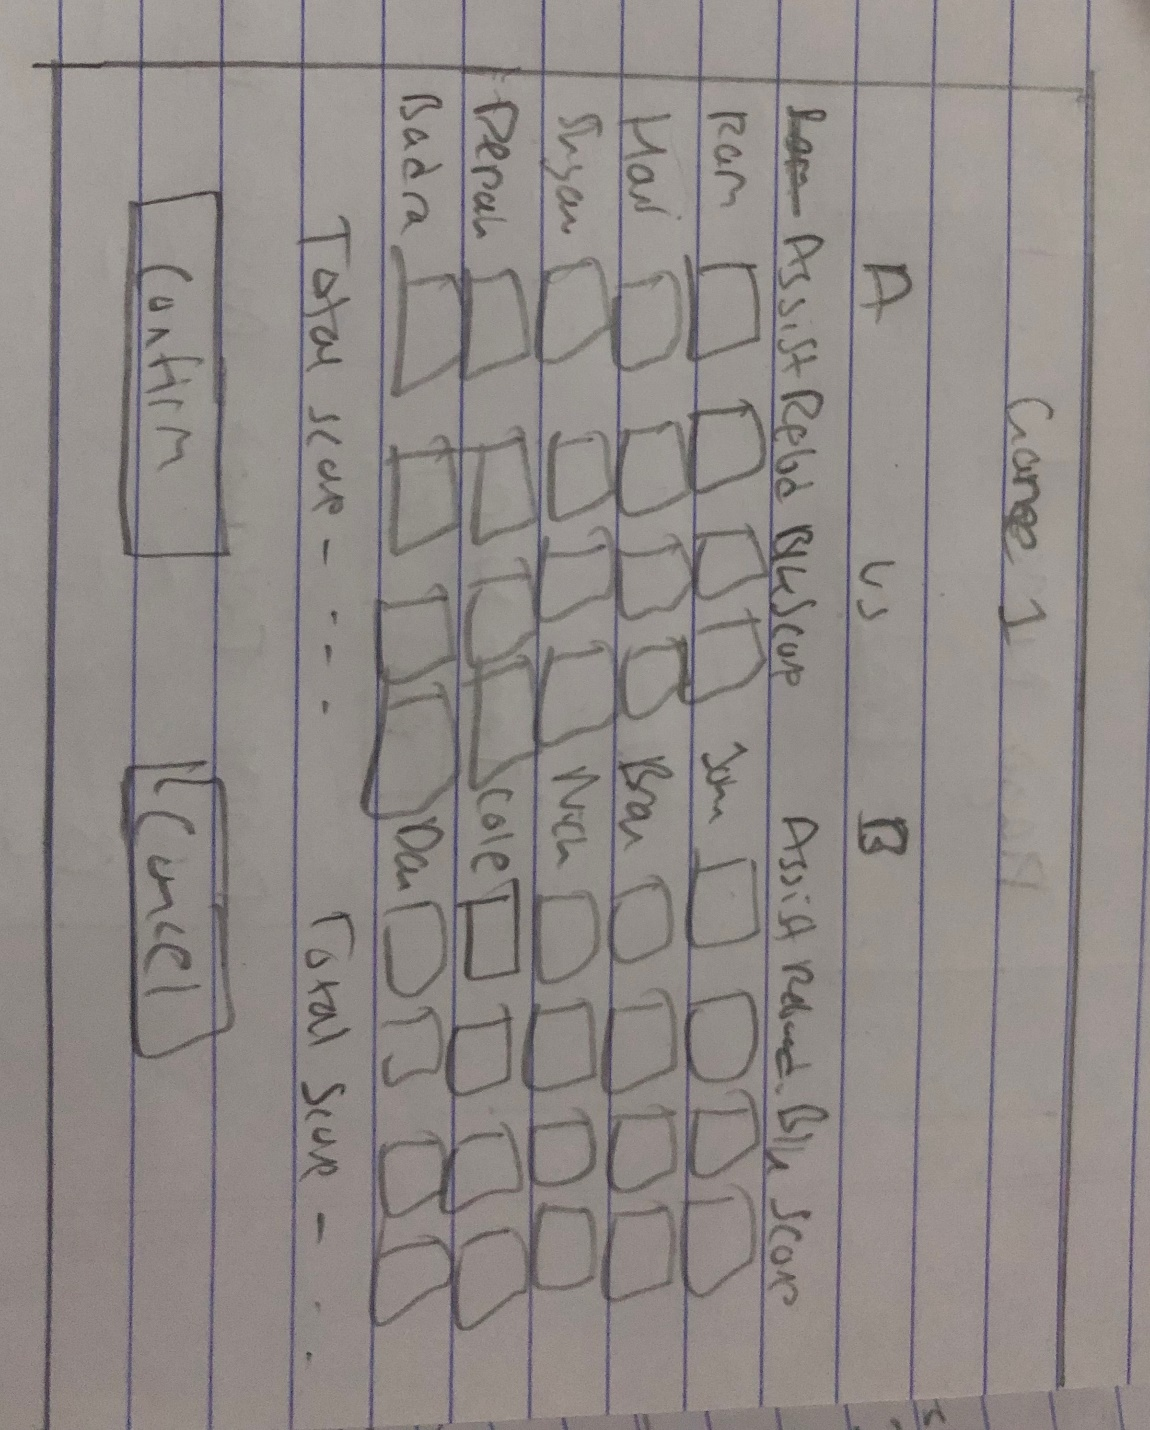 Game 1
A vs B
Assist Rebd Blk Score Assist Rebound. Blk Score
Ram John
Hari Bran
Shyam Nick
Cole
Badra Dan
Total score - - - - Total Score - . .
Confirm Cancel